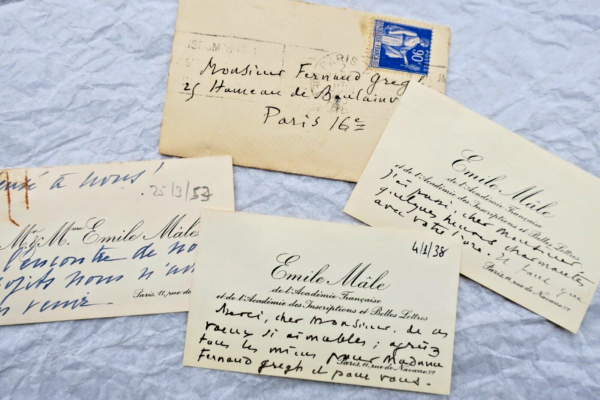 PARIS
90c
POSTES
Monsieur Fernand Gregh
25 Hameau de Boulainv
Paris 16e
pensé à nous!
25/3/53
Mr & Mme Emile Mâle
l'encontre de no
projets nous n'av
venir
Paris, 11, rue de
Emile Mâle
de l'Académie Française
et de l'Académie des Inscriptions et Belles Lettres
J'ai passé cher Monsieur
quelques heures charmantes
avec votre livre. Il faut que
Paris, 11, rue de Navarre. Ve
4/1/38
Emile Mâle
de l'Académie Française
et de l'Académie des Inscriptions et Belles Lettres
Merci, cher Monsieur, de ces
vœux si aimables; agréez
tous les miens pour Madame
Paris, 11, rue de Navarre. Ve
Fernand Gregh et pour vous.